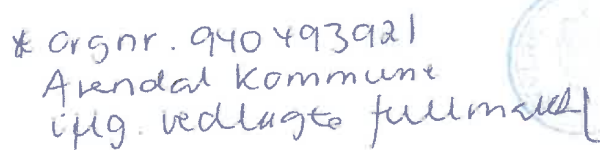 * orgnr. 940493921
Arendal kommune
iflg. vedlagte fullmakt